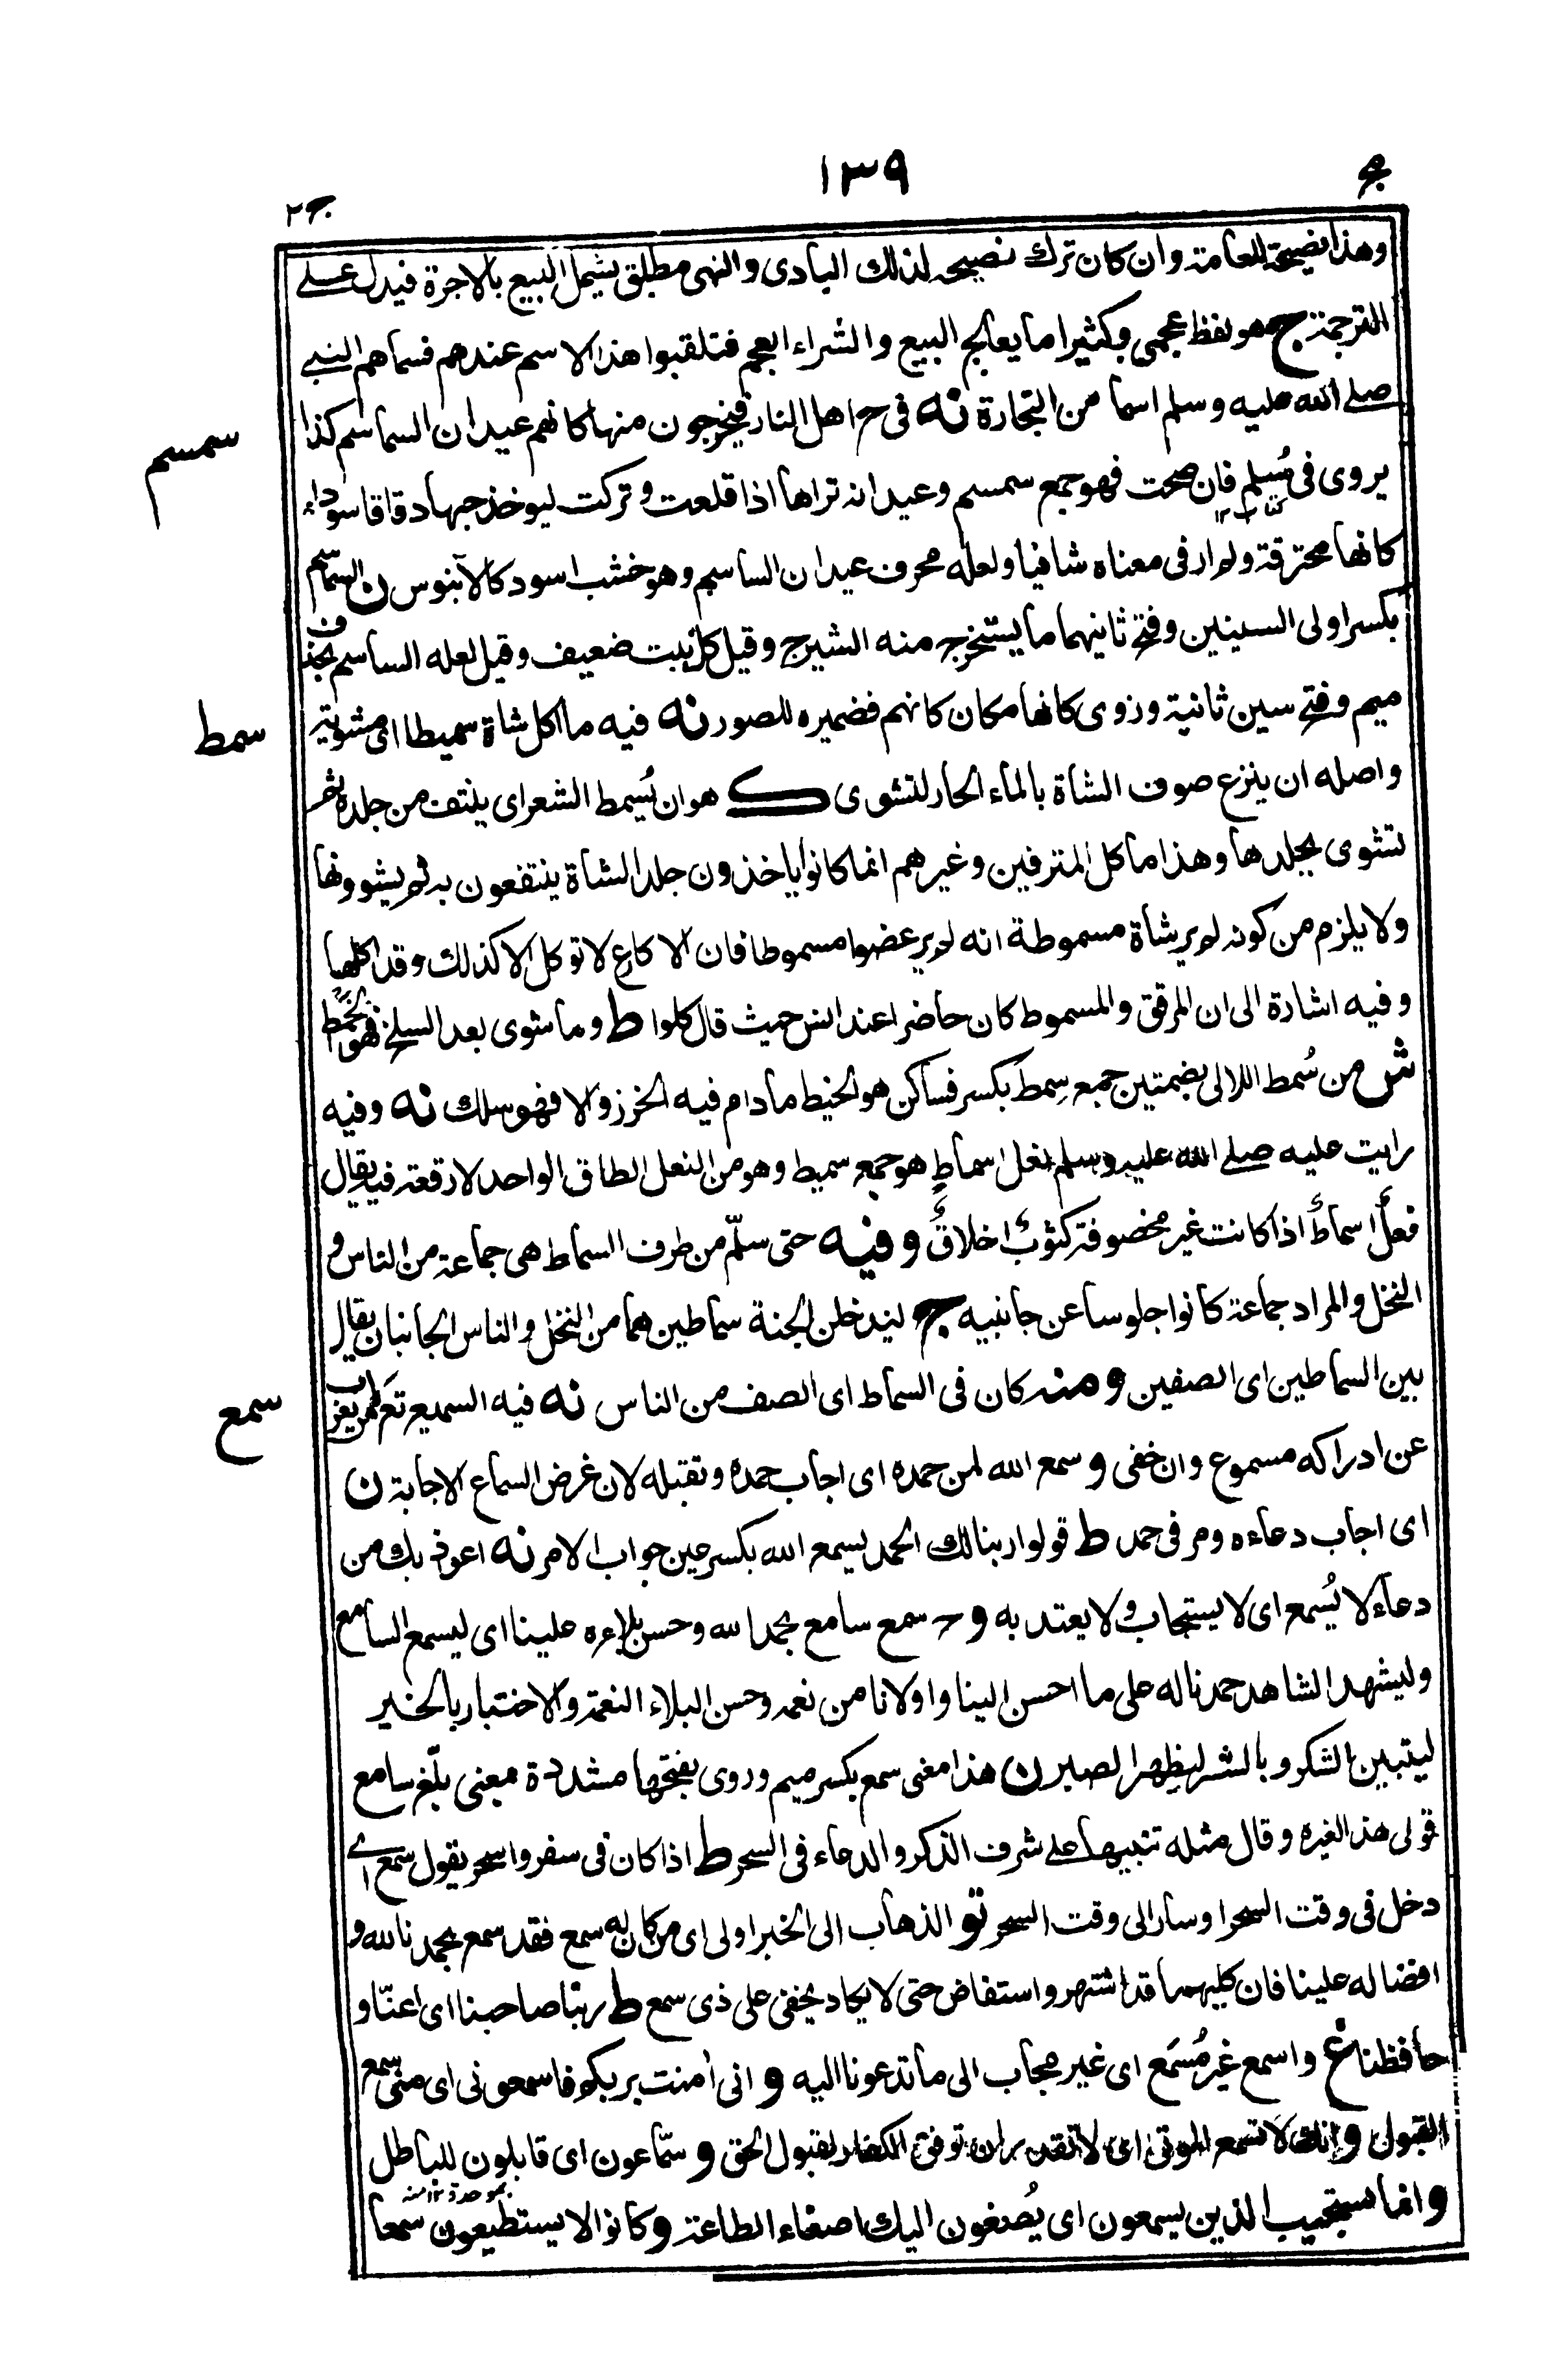 ١٣٩
ج٢
وهذا نصيحة للعامة وان كان ترك نصيحه لذلك البادى والنهى مطلق يشمل البيع بالاجرة فيدل على
الترجمة ج هو لفظ عجمى وكثيرا ما يعالج البيع والشراء العجم فتلقبوا هذا الاسم عندهم فسماهم النبي
صلى الله عليه وسلم اسما من التجارة نه فى ح اهل النار فيخرجون منها كانهم عيدان السماسم كذا
سمسم
يروى فى مسلم فان صحت فهو جمع سمسم وعيدانه تراها اذا قلعت وتركت ليوخذ حبها دقاقا سوداء
كانها محترقة ولم ار فى معناه شافيا ولعله محرف عيدان الساسم وهو خشب اسود كالآبنوس ن السماسم
بكسر اولى السينين وفتح ثانيهما ما يستخرج منه الشيرج وقيل كل نبت ضعيف وقيل لعله الساسم بحذف
ميم وفتح سين ثانية وروى كانها مكان كانهم فضميره للصور نه فيه ما اكل شاة سميطا اى مشوية
سمط
واصله ان ينزع صوف الشاة بالماء الحار لتشوى ك هو ان يُسمط الشعر اى ينتف من جلده ثم
تشوى بجلدها وهذا ماكل المترفين وغيرهم انما كانوا ياخذون جلد الشاة ينتفعون به ثم يشوونها
ولا يلزم من كونه لم ير شاة مسموطة انه لم ير عضوا مسموطا فان الاكارع لا توكل الا كذلك وقد اكلها
وفيه اشارة الى ان المرقق والمسموط كان حاضرا عند انس حيث قال كلوا ط وما شوى بعد السلخ فهو الخمط
ش من سُمط اللالى بضمتين جمع سِمط بكسر فساكن هو الخيط ما دام فيه الخرز والا فهو سلك نه وفيه
رايت عليه صلى الله عليه وسلم نعل اسماطٍ هو جمع سميط وهو من النعل الطاق الواحد لا رقعة فيه يقال
نعلٌ اسماطٌ اذا كانت غير مخصوفة كثوبٌ اخلاقٌ وفيه حتى سلّم من طرف السماط هى جماعة من الناس و
النخل والمراد جماعة كانوا جلوسا عن جانبيه ج ليدخلن الجنة سماطين هما من النخل والناس الجانبان يقال
بين السماطين اى الصفين ومنه كان فى السماط اى الصف من الناس نه فيه السميع تعالى من لا يعزب
سمع
عن ادراكه مسموع وان خفى و سمع الله لمن حمده اى اجاب حمده وتقبله لان غرض السماع الاجابة ن
اى اجاب دعاءه ومر فى حمد ط قولوا ربنا لك الحمد يسمع الله بكسر عين جواب الامر نه اعوذ بك من
دعاء لا يُسمع اى لا يستجاب ولا يعتد به و ح سمع سامع بحمد الله وحسن بلاءه علينا اى ليسمع السامع
وليشهد الشاهد حمدنا له على ما احسن الينا واولانا من نعمه وحسن البلاء النعمة والاختبار بالخير
ليتبين الشكر وبالشر ليظهر الصبر ن هذا معنى سمع بكسر ميم وروى بفتحها مشددة معنى بلّغ سامع
قولى هذا لغيره وقال مثله تنبيها على شرف الذكر والدعاء فى السحر ط اذا كان فى سفر واسحر يقول سمع اى
دخل فى وقت السحر او سار الى وقت السحر تو الذهاب الى الخبر اولى اى من كان له سمع فقد سمع بحمدنا لله و
افضاله علينا فان كليهما قد اشتهر واستفاض حتى لا يكاد يخفى على ذى سمع ط ربنا صاحبنا اى اعنّا و
حافظنا غ واسمع غير مُسمَع اى غير مجاب الى ما تدعونا اليه و انى آمنت بربكم فاسمعونى اى منى سمع
القبول و انك لا تسمع الموتى اى لا تقدر ان توفق الكفار لقبول الحق و سمّاعون اى قابلون للباطل
و انما يستجيب الذين يسمعون اى يُصغون اليك اصغاء الطاعة و كانوا لا يستطيعون سمعا